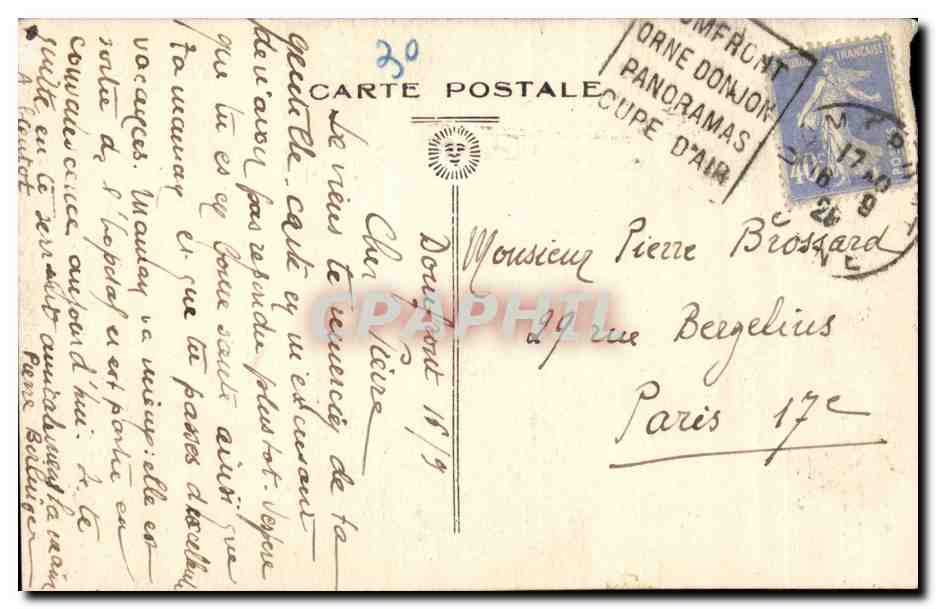 30
CARTE POSTALE
DOMFRONT
ORNE DONJON
PANORAMAS
CUPE D'AIR
FRANÇAISE
40
Monsieur Pierre Brossard
29 rue Bergelius
Paris 17e
CPAPHIL
Domfront 16/9
Cher Pierre
Je viens te remercier de ta
gentille carte en m'excusant
de n'avoir pas répondu plus tot. J'espere
que tu es en bonne santé ainsi que
ta maman et que tu passes d'excellentes
vacances. Maman va mieux, elle est
sortie de l'hopital et est partie en
convalescence aujourd'hui. Je te
quitte en te serrant amicalement la main
A bientot
Pierre